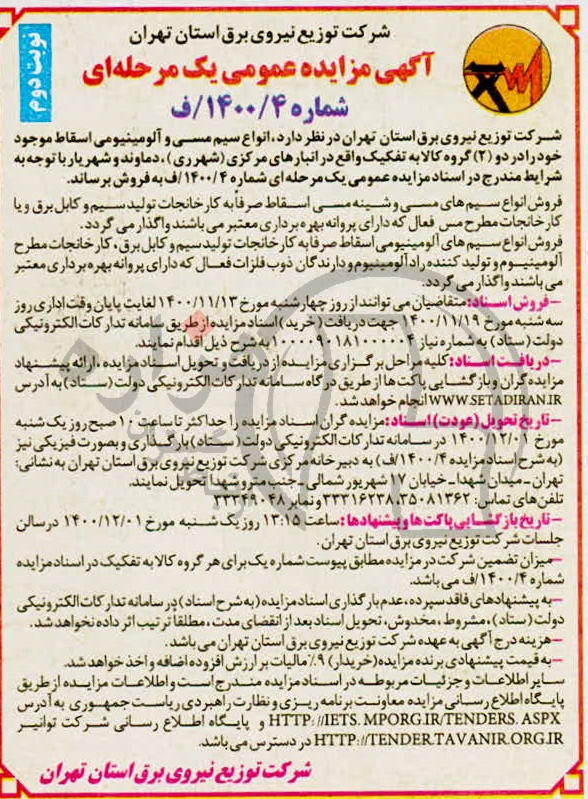 شرکت توزیع نیروی برق استان تهران
نوبت دوم
آگهی مزایده عمومی یک مرحله‌ای
شماره ۱۴۰۰/۴/ف
شرکت توزیع نیروی برق استان تهران در نظر دارد، انواع سیم مسی و آلومینیومی اسقاط موجود
خود را در دو (۲) گروه کالا به تفکیک واقع در انبارهای مرکزی (شهر ری)، دماوند و شهریار با توجه به
شرایط مندرج در اسناد مزایده عمومی یک مرحله‌ای شماره ۱۴۰۰/۴/ف به فروش برساند.
فروش انواع سیم های مسی و شینه مسی اسقاط صرفاً به کارخانجات تولید سیم و کابل برق و یا
کارخانجات مطرح مس فعال که دارای پروانه بهره برداری معتبر می باشند واگذار می گردد.
فروش انواع سیم های آلومینیومی اسقاط صرفا به کارخانجات تولید سیم و کابل برق، کارخانجات مطرح
آلومینیوم و تولید کننده راد آلومینیوم و دارندگان ذوب فلزات فعال که دارای پروانه بهره برداری معتبر
می باشند واگذار می گردد.
–فروش اسناد: متقاضیان می توانند از روز چهارشنبه مورخ ۱۴۰۰/۱۱/۱۳ لغایت پایان وقت اداری روز
سه شنبه مورخ ۱۴۰۰/۱۱/۱۹ جهت دریافت (خرید) اسناد مزایده از طریق سامانه تدارکات الکترونیکی
دولت (ستاد) به شماره نیاز ۱۰۰۰۰۹۰۱۸۱۰۰۰۰۰۴ به شرح ذیل اقدام نمایند.
–دریافت اسناد: کلیه مراحل برگزاری مزایده از دریافت و تحویل اسناد مزایده، ارائه پیشنهاد
مزایده گران و بازگشایی پاکت ها از طریق درگاه سامانه تدارکات الکترونیکی دولت (ستاد) به آدرس
WWW.SETADIRAN.IR انجام خواهد شد.
–تاریخ تحویل (عودت) اسناد: مزایده گران اسناد مزایده را حداکثر تا ساعت ۱۰ صبح روز یک شنبه
مورخ ۱۴۰۰/۱۲/۰۱ در سامانه تدارکات الکترونیکی دولت (ستاد) بارگذاری و بصورت فیزیکی نیز
(به شرح اسناد مزایده ۱۴۰۰/۴/ف) به دبیرخانه مرکزی شرکت توزیع نیروی برق استان تهران به نشانی:
تهران–میدان شهدا–خیابان ۱۷ شهریور شمالی–جنب مترو شهدا تحویل نمایند.
تلفن های تماس: ۳۵۰۸۱۳۶۲، ۳۳۳۱۶۲۳۸ و نمابر ۳۳۳۴۹۰۴۸
–تاریخ بازگشایی پاکت ها و پیشنهادها: ساعت ۱۳:۱۵ روز یک شنبه مورخ ۱۴۰۰/۱۲/۰۱ در سالن
جلسات شرکت توزیع نیروی برق استان تهران.
–میزان تضمین شرکت در مزایده مطابق پیوست شماره یک برای هر گروه کالا به تفکیک در اسناد مزایده
شماره ۱۴۰۰/۴/ف می باشد.
–به پیشنهادهای فاقد سپرده، عدم بارگذاری اسناد مزایده (به شرح اسناد) در سامانه تدارکات الکترونیکی
دولت (ستاد)، مشروط، مخدوش، تحویل اسناد بعد از انقضای مدت، مطلقا ترتیب اثر داده نخواهد شد.
–هزینه درج آگهی به عهده شرکت توزیع نیروی برق استان تهران می باشد.
–به قیمت پیشنهادی برنده مزایده (خریدار) ۹٪ مالیات بر ارزش افزوده اضافه و اخذ خواهد شد.
سایر اطلاعات و جزئیات مربوطه در اسناد مزایده مندرج است و اطلاعات مزایده از طریق
پایگاه اطلاع رسانی مزایده معاونت برنامه ریزی و نظارت راهبردی ریاست جمهوری به آدرس
HTTP://IETS.MPORG.IR/TENDERS.ASPX و پایگاه اطلاع رسانی شرکت توانیر
HTTP://TENDER.TAVANIR.ORG.IR در دسترس می باشد.
شرکت توزیع نیروی برق استان تهران